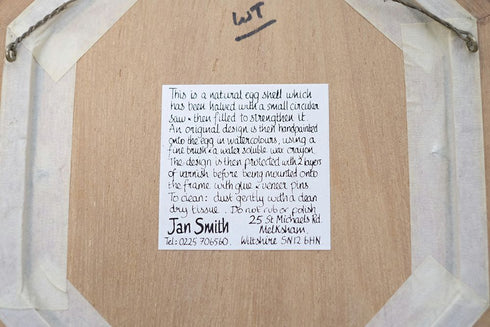 WT
This is a natural egg shell which
has been halved with a small circular
saw & then filled to strengthen it.
An original design is then handpainted
onto the egg in watercolours, using a
fine brush & a water soluble wax crayon.
The design is then protected with 2 layers
of varnish before being mounted onto
the frame with glue & veneer pins.
To clean: dust gently with a clean
dry tissue. Do not rub or polish
Jan Smith
25 St Michaels Rd.
Melksham.
Tel: 0225 706560. Wiltshire SN12 6HN